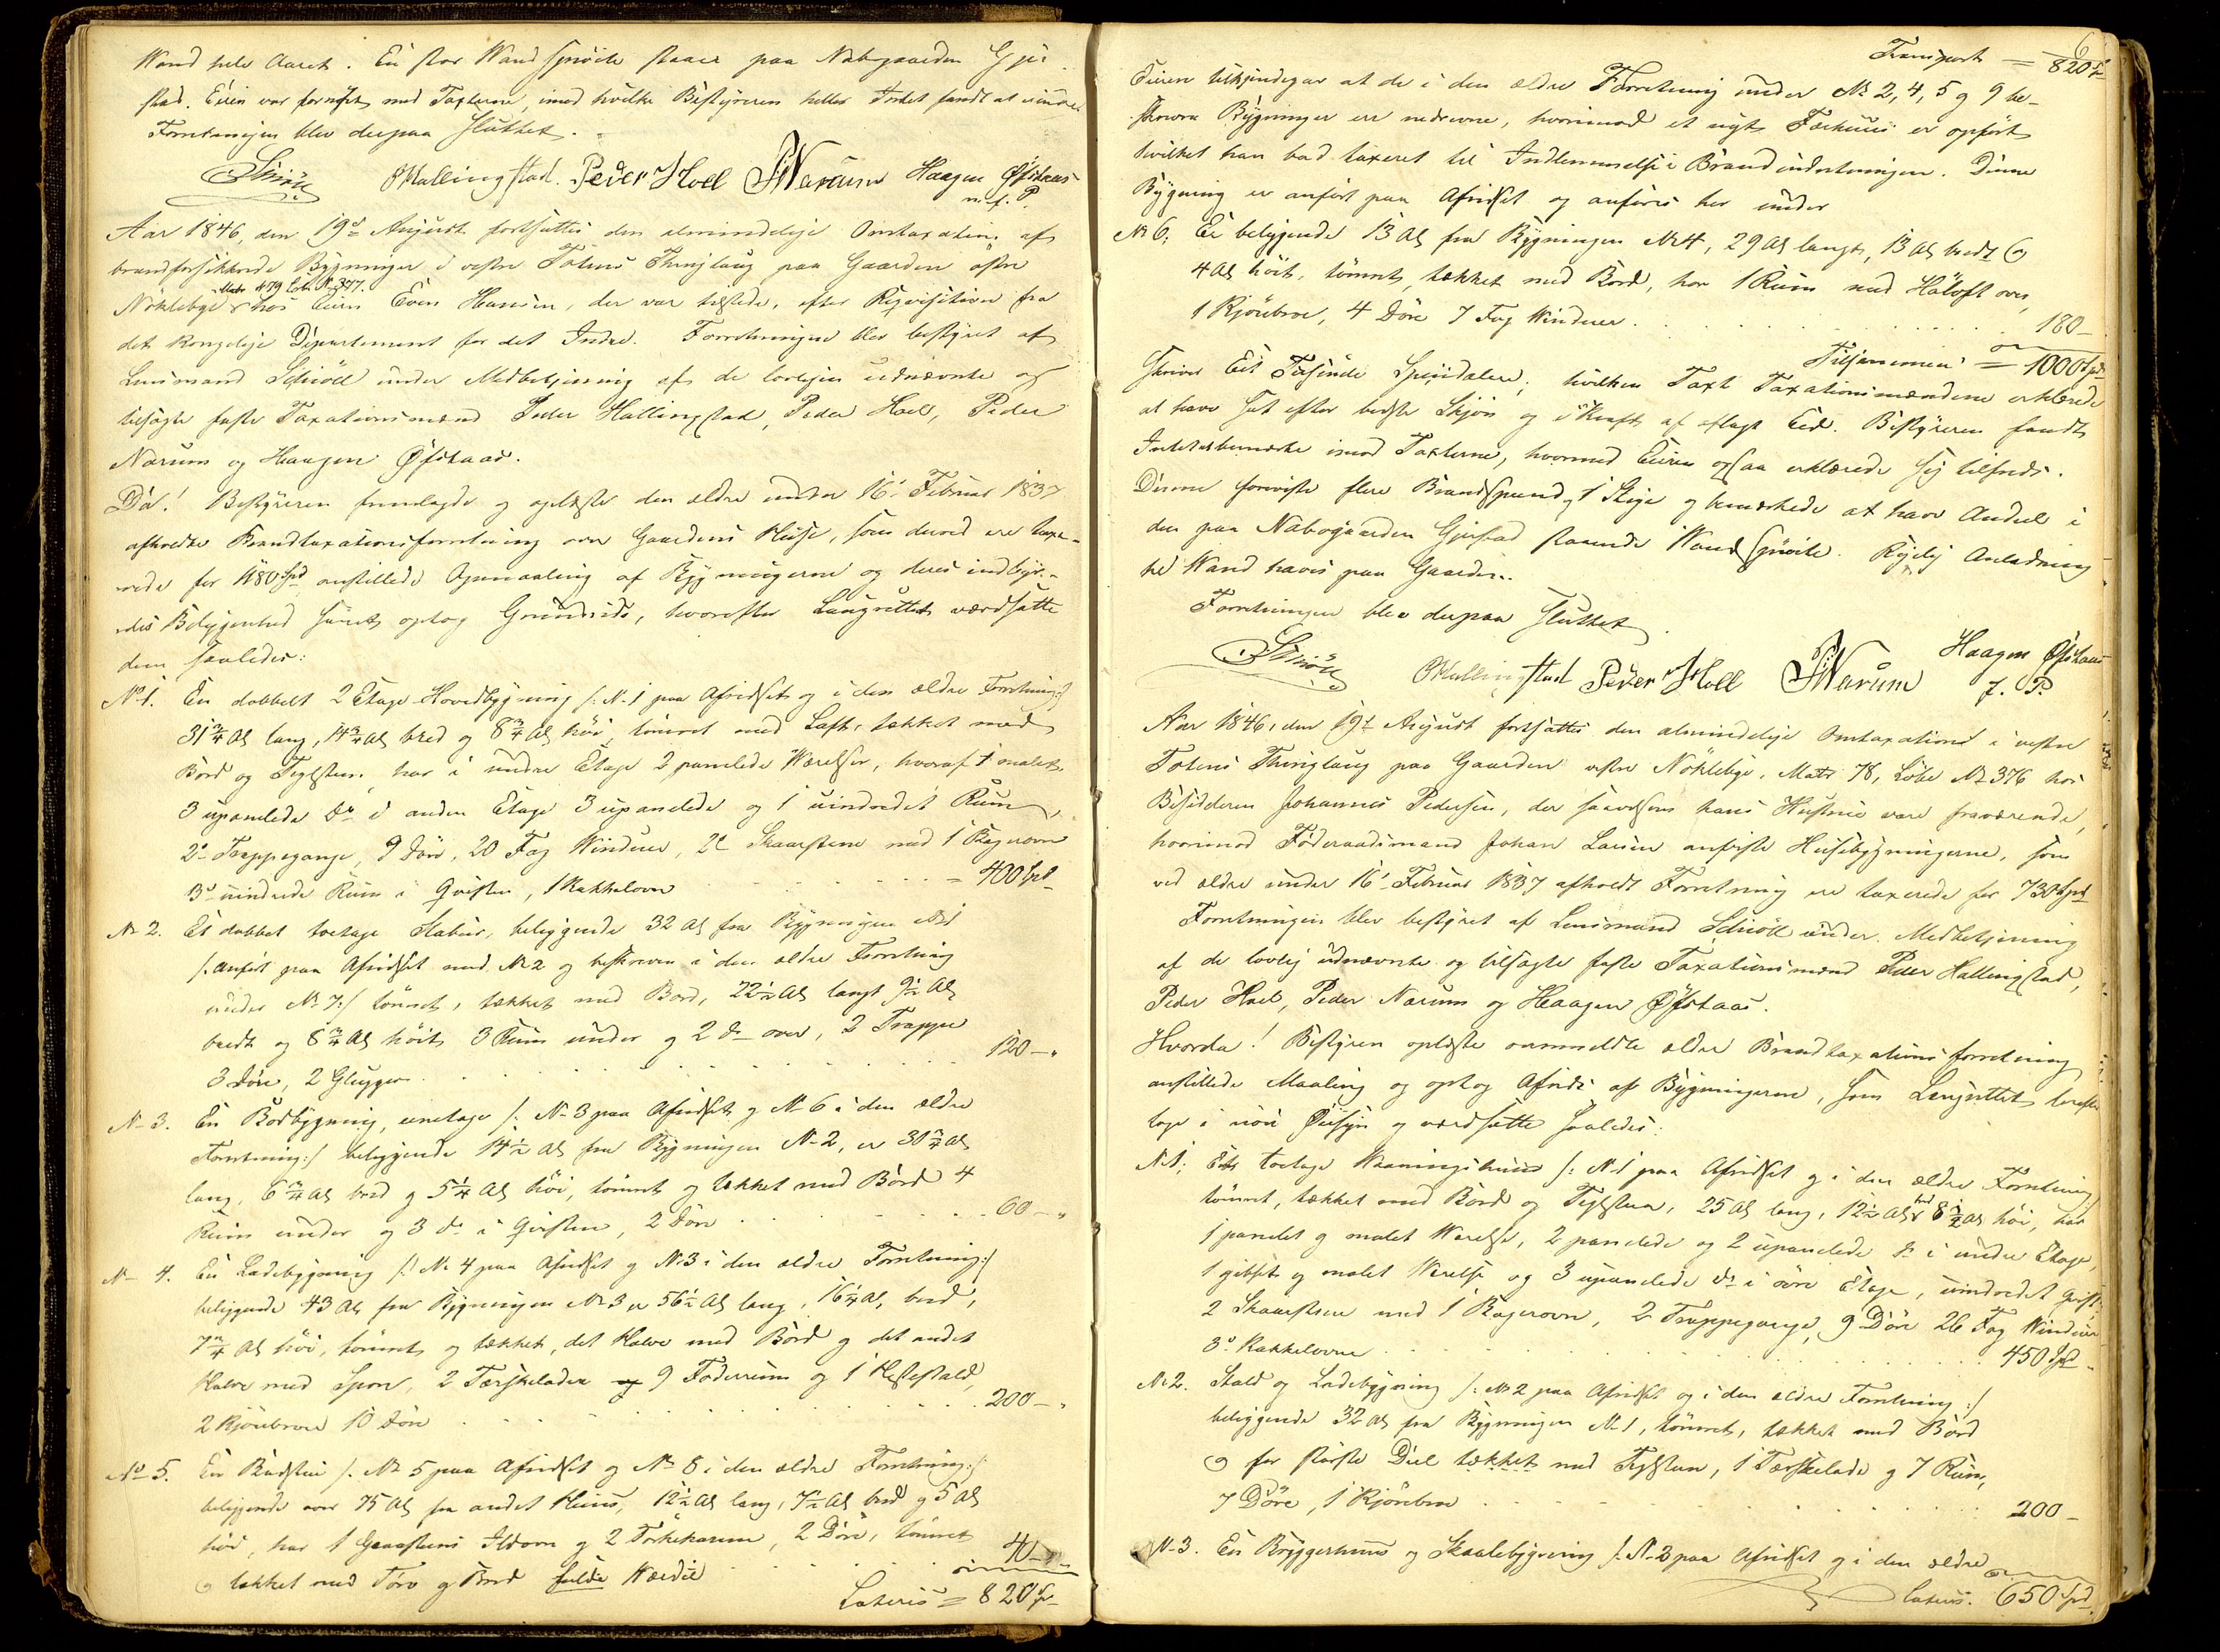 Wand hele Aaret. En stor Wandsprøite staaer paa Nabogaarden Gjer-
stad. Eieren var fornøiet med Taxterne, imod hvilke Bestyreren heller Intet fandt at erindre
Forretningen blev derpaa sluttet.
Schiøll OHallingstad. Peder Hoel PNærum Haagen Øfstaas
m. f. P.
Aar 1846, den 19de August fortsattes den almindelige Omtaxation af
brandforsikkrede Bygninger i vestre Totens Thinglaug paa Gaarden østre
Matr 479 Løbe No 377.
Nøklebye hos Eieren Even Hansen, der var tilstede, efter Reqvisition fra
det kongelige Departement for det Indre. Forretningen blev bestyret af
Lensmand Schiøll under Medbetjening af de lovligen udnævnte og
tilsagte faste Taxationsmænd Peder Hallingstad, Peder Hoel, Peder
Nærum og Haagen Øfstaas.
Da! Bestyreren fremlagde og oplæste den ældre under 16de Februar 1837
afholdte Brandtaxationsforretning over Gaardens Huse, som derved ere taxe-
rede for 1180 Spd anstillede Opmaaling af Bygningerne og deres indbyr-
des Beliggenhed samt optog Grundrids, hvorefter Laugrettet værdsatte
dem saaledes:
No 1. En dobbelt 2 Etage Hovedbygning /: No 1 paa Afridset og i den ældre Forretning :/
31 3/4 Al lang, 14 3/4 Al bred og 8 3/4 Al høi, tømret med Laft, takket med
Bord og Teglsteen, har i undre Etage 2 panelede Værelser, hvoraf 1 malet,
3 upanelede do i anden Etage 3 upanelede og 1 uindredet Rum,
2de Trappegange, 9 Døre, 20 Fag Winduer, 2de Skaarstene med 1 Bagerovn
3de uindrede Rum i Qvisten, 1 Kakkelovn = 400 Spd
No 2. Et dobbelt toetage Stabur, beliggende 32 Al fra Bygningen No 1
/: anført paa Afridset med No 2 og beskreven i den ældre Forretning
under No 7 :/ tømret, tækket med Bord, 22 1/2 Al langt 9 1/2 Al
bredt og 8 3/4 Al høit 3 Rum under og 2 do over, 2 Trapper
3 Døre, 2 Glugger. 120 – "
No 3. En Bodbygning, eenetage /: No 3 paa Afridset og No 6 i den ældre
Forretning :/ beliggende 14 1/2 Al fra Bygningen No 2, er 31 3/4 Al
lang, 6 3/4 Al bred og 5 1/4 Al høi, tømret og tækket med Bord 4
Rum under og 3 do i Qvisten, 2 Døre 60 – "
No 4. En Ladebygning /: No 4 paa Afridset og No 3 i den ældre Forretning :/
beliggende 43 Al fra Bygningen No 3 er 56 1/2 Al lang, 16 1/4 Al, bred,
7 3/4 Al høi, tømret og tækket, det Halve med Bord og det andet
Halve med Spon, 2 Tærskelader og 9 Foderrum og 1 Hestestald,
2 Kjørebroer 10 Døre 200 – "
No 5. En Badstue /: No 5 paa Afridset og No 8 i den ældre Forretning :/
beliggende over 75 Al fra andet Huus, 12 1/2 Al lang, 7 1/2 Al bred og 5 Al
høi, har 1 Graasteens Ildovn og 2 Tørkekarme, 2 Døre, tømret
og tækket med Torv og Bord fulde Værdie 40 – "
Lateris = 820 Sp
6
Transport = 820 Sp
Eieren tilkjendegav at de i den ældre Forretning under No 2, 4, 5 og 9 be-
skrevne Bygninger ere nedrevne, hvorimod et nyt Fæehuus er opført
hvilket han bad taxeret til Indlemmelse i Brandindretningen. Denne
Bygning er anført paa Afridset og anføres her under
No 6, Er beliggende 13 Al fra Bygningen No 4, 29 Al langt, 13 Al bredt og
4 Al høit, tømret, tækket med Bord, har 1 Rum med Høloft over
1 Kjørebroe, 4 Døre 7 Fag Winduer 180 –
Tilsammen = 1000 Spd
skriver Eet Tusinde Speciedaler; hvilken Taxt Taxationsmændene erklærede
at have sat efter bedste Skjøn og i Kraft af aflagt Eed. Bestyreren fandt
Intet at bemærke imod Taxterne, hvormed Eieren ogsaa erklærede sig tilfreds.
Denne foreviste flere Brandspand og 1 Stige og bemærkede at have Andeel i
den paa Nabogaarden Gjerstad staaende Wandsprøite. Rigelig Anledning
til Wand haves paa Gaarden.
Forretningen blev derpaa sluttet.
Schiøll OHallingstad Peder Hoel PNærum Haagen Øfstaas
f. P.
Aar 1846, den 19de August fortsattes den almindelige Omtaxation i vestre
Totens Thinglaug paa Gaarden vestre Nøklebye, Matr 78, Løbe No 376 hos
Besidderen Johannes Pedersen, der saavelsom hans Hustrue vare fraværende,
hvorimod Føderaadsmand Johan Larsen anviste Husebygningerne, som
ved ældre under 16de Februar 1837 afholdt Forretning ere taxerede for 730 Spd
Forretningen blev bestyret af Lensmand Schiøll under Medbetjening
af de lovlig udnævnte og tilsagte faste Taxationsmænd Peder Hallingstad,
Peder Hoel, Peder Nærum og Haagen Øfstaas.
Hvorda! Bestyreren oplæste ovenmeldte ældre Brandtaxationsforretning
anstillede Maaling og optog Afrids af Bygningerne, som Laugrettet derefter
toge i nøie Øiesyn og værdsatte saaledes:
No 1, Et toetage Waaningshuus /: No 1 paa Afridset og i den ældre Forretning
tømret, tækket med Bord og Teglsteen, 25 Al lang, 12 1/2 Al bred 8 1/2 Al høi, har
1 panelet og malet Værelse, 2 panelede og 2 upanelede do i undre Etage,
1 gibset og malet Værelse og 3 upanelede do i øvre Etage, uindredet Qvist,
2 Skaarstene med 1 Bagerovn, 2 Trappegange, 9 Døre 26 Fag Winduer
3de Kakkelovne 450 Spd
No 2. Stald og Ladebygning /: No 2 paa Afridset og i den ældre Forretning :/
beliggende 32 Al fra Bygningen No 1, tømret, tækket med Bord
og for største Deel tækket med Teglsteen, 1 Tærskelade og 7 Rum,
7 Døre, 1 Kjørebroe 200 –
No 3. En Bryggerhuus og Skaalebygning /: No 3 paa Afridset og i den ældre
Lateris. 650 Spd.